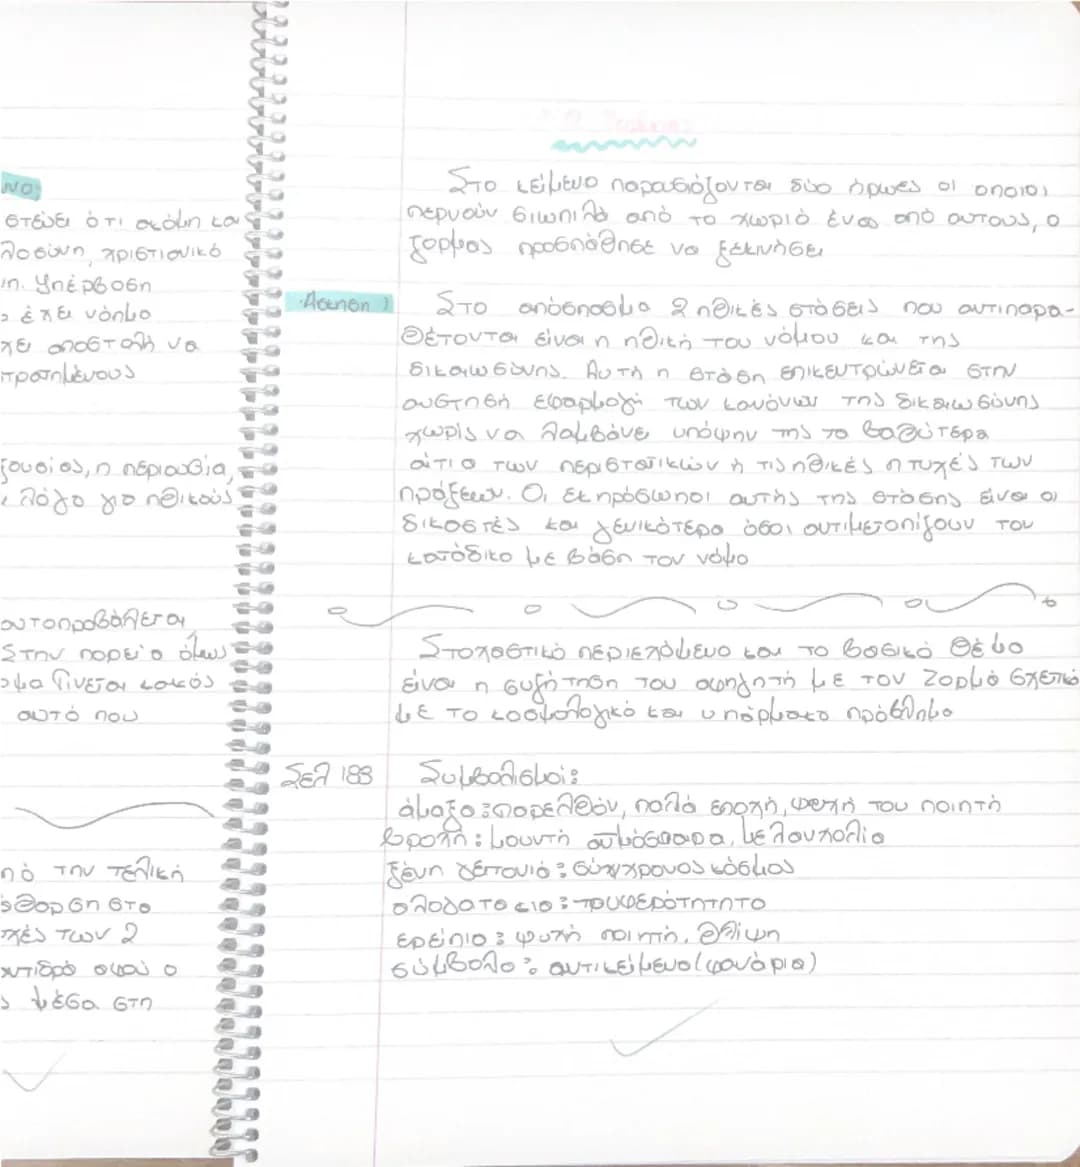 νο:
στεύει ότι ακόμη και
λοσύνη, χριστιανικό
ιη. Υπέρβαση
ο έχει νόημα
χει αποστολή να
τρατημένους
ξουσίας, η περιουσία,
ε λόγο για ηθικούς
αυτοπροβάλεται
Στην πορεία όμως
ομα Γίνεται κακός
αυτό που
πό την τελική
φθορση στο
τχές των 2
αντιδρά αφού ο
ς μέσα στη
Στο κείμενο παρασιάζονται δύο ήρωες οι οποιοι
περνούν σιωπιλά από το χωριό ένας από αυτους, ο
ζορμας προσπάθησε να ξεκινήσει
Άσκηση 1
Στο απόσπασμα 2 ηθικές στάσεις που αντιπαρα-
θέτονται είναι η ηθική του νόμου και της
δικαιωσύνης. Αυτή η στάση επικεντρώνεται στην
αυστησή εφαρμογή των κανόνων της δικαιωσύνης
χωρίς να λαμβάνει υπόψην της τα βαθύτερα
αίτια των περιστατικών ή τις ηθικές πτυχές των
πράξεων. Οι εκπρόσωποι αυτής της στάσης είναι οι
δικαστές και γενικότερα όσοι αντιμετοπίζουν τον
κατάδικο με βάση τον νόμο
Στοχαστικό περιεχόμενο και το βασικό θέμα
είναι η συζήτηση του αφηγητή με τον Ζορμπά σχετικά
με το κοσμολογικό και υπάρματο πρόβλημα
Σελ 188
Συμβολισμοί:
άμαξα: παρελθόν, παλιά εποχή, ψυχή του ποιητή
βροχή: μουντή ατμόσφαρα, μελαγχολία
ξένη γειτονιά: σύγχρονος κόσμος
τρυφερότητητα
ερείπιο: ψυχή ποιητή, θλίψη
σύμβολο: αντικείμενο (φανάρια)